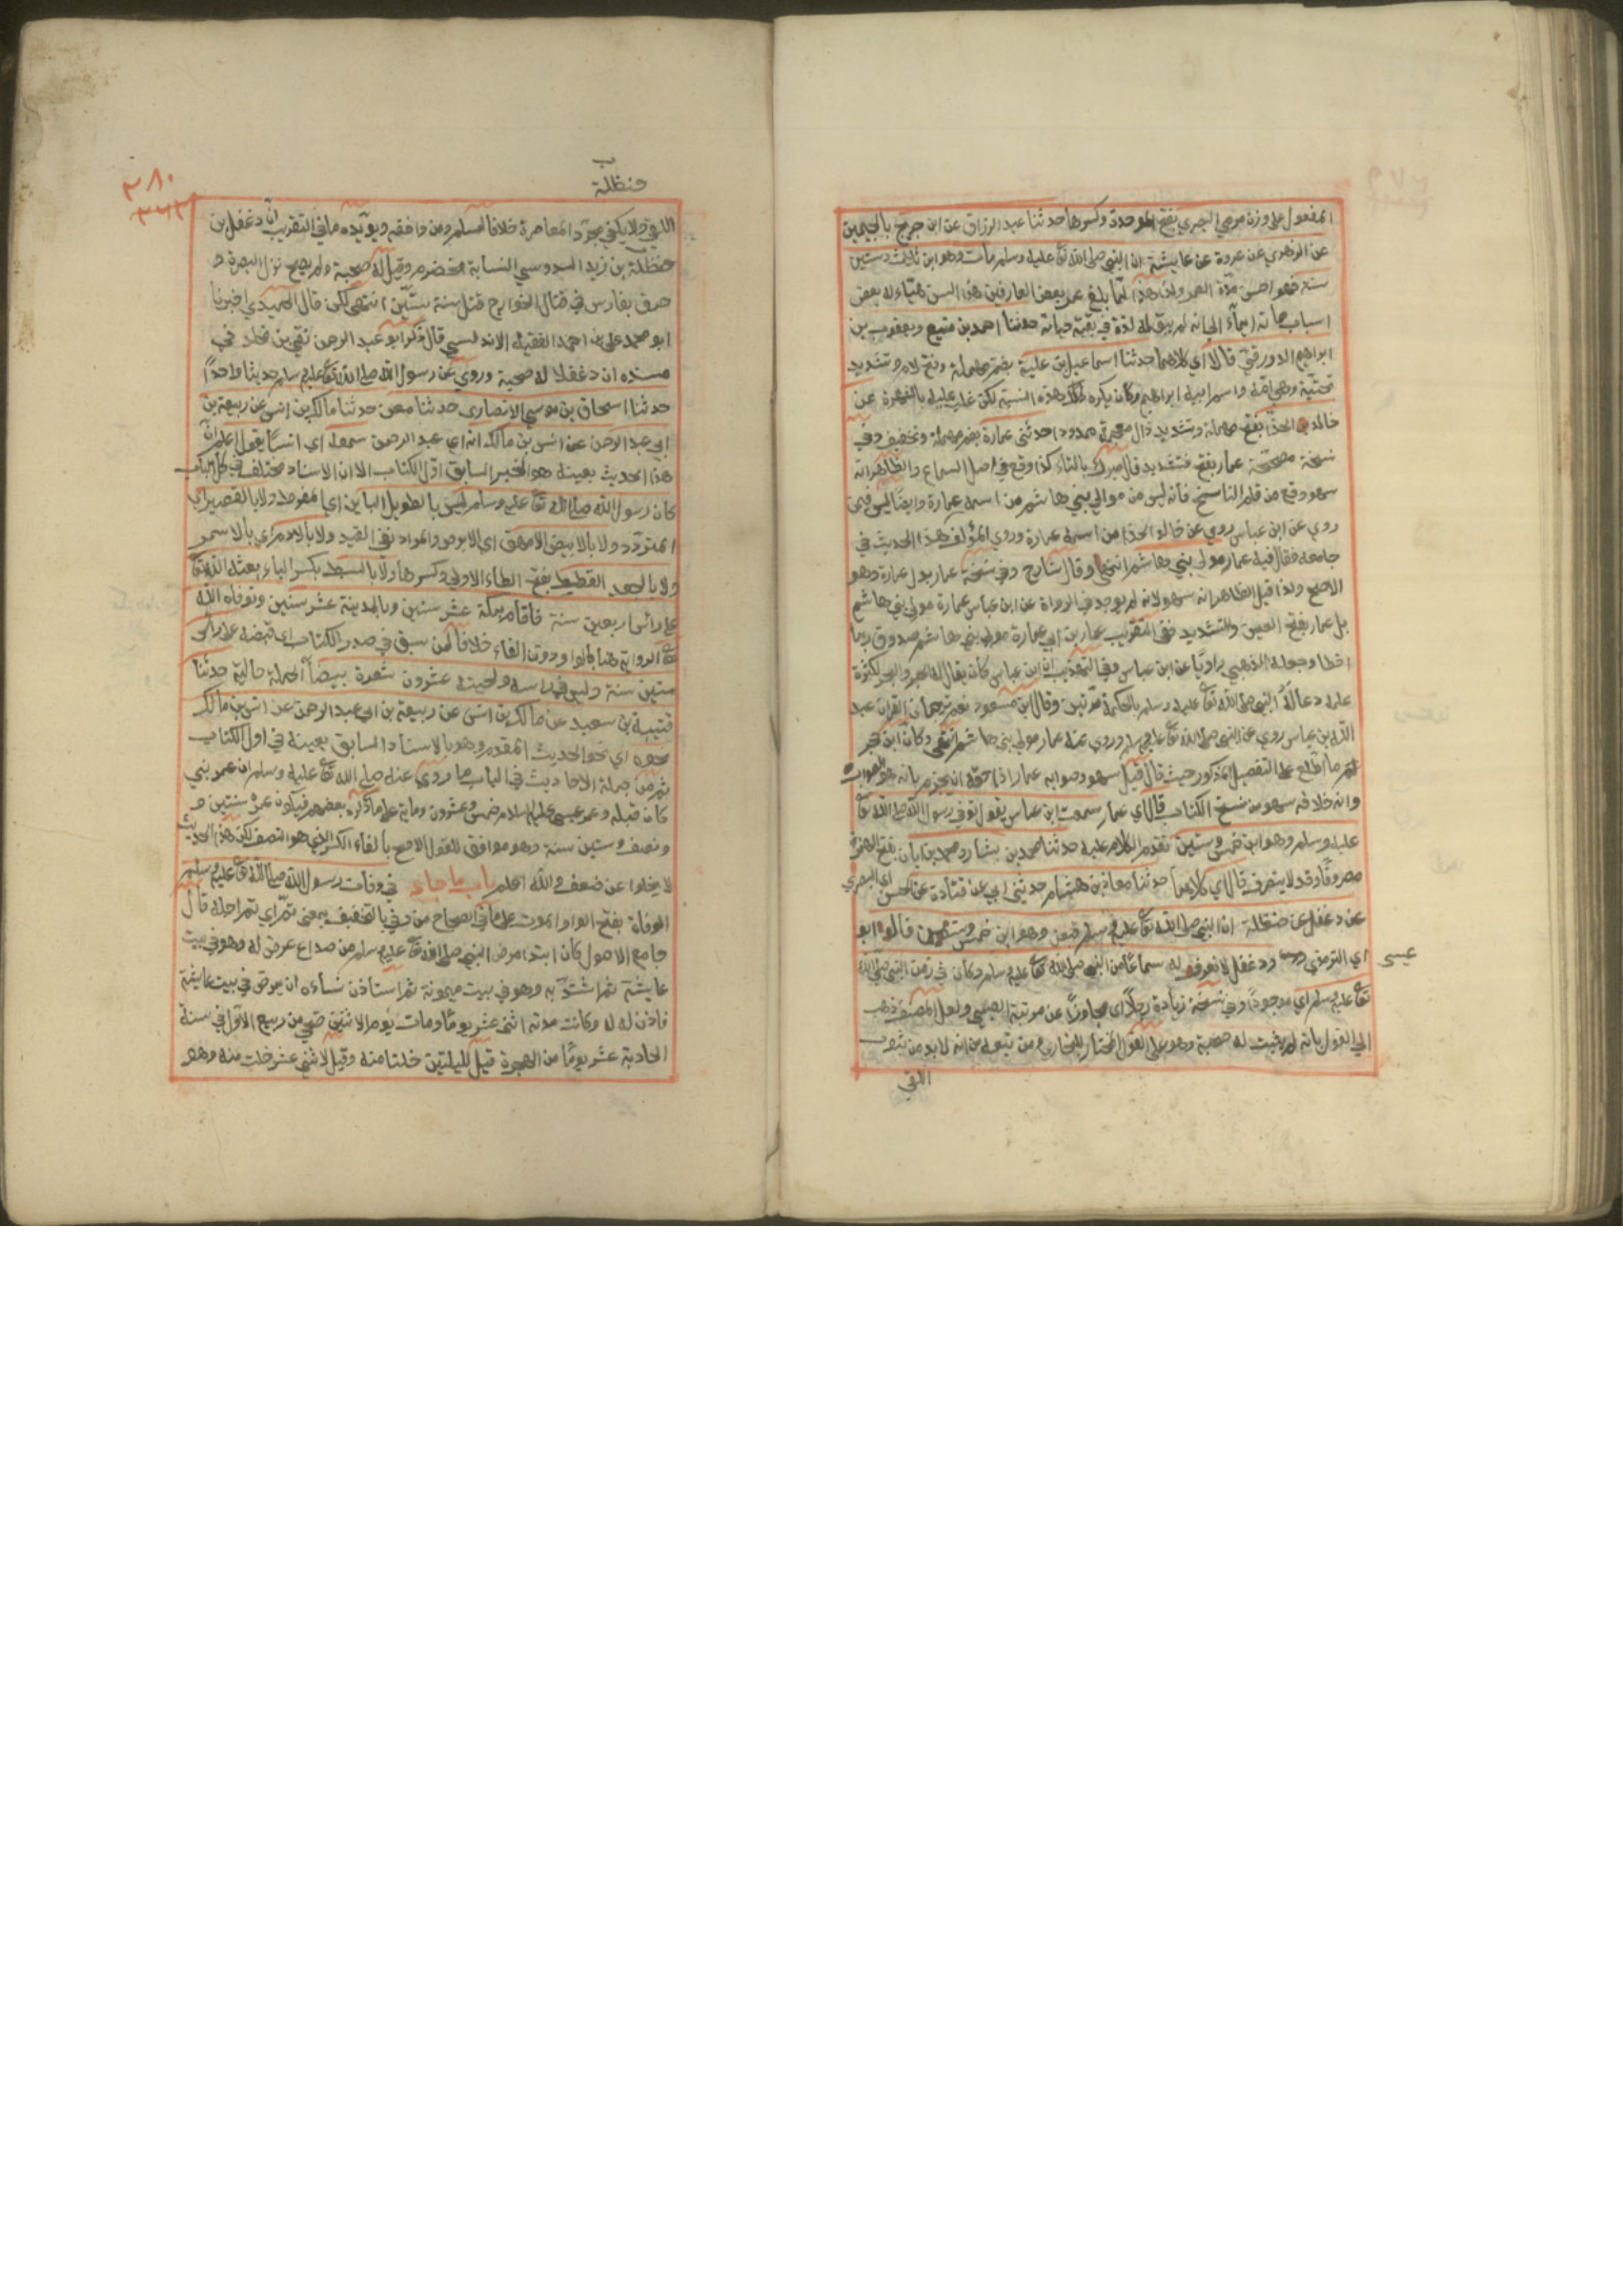 المفعول على وزن مرمي البصري بفتح الموحدة وكسرها حدثنا عبد الرزاق عن ابن جريج بالجيمين
عن الزهري عن عروة عن عايشة ان النبي صلى الله تعا عليه وسلم مات وهو ابن ثلاث وستين
سنة فهو احسن مدّة العمر ولذا هذا لمّا بلغ عمر بعض العارفين هذا السن هيّاء له بعض
اسباب مماته ايماء الى انه لم يبق له لذة في بقية حياته حدثنا احمد بن منيع ويعقوب بن
ابراهيم الدورقي قالا اي كلاهما حدثنا اسماعيل بن علية بضم مهملة وفتح لام وتشديد
تحتية وهي امّه واسم ابيه ابراهيم وكان يكره ذلك هذه النسبة لكن غلب عليه بالشهرة عن
خالد الحذّا بفتح مهملة وتشديد ذال معجمة ممدودا حدثني عمارة بضم مهملة وتخفيف وفي
نسخة مصححة عمار بفتح فتشديد قال ميرك بالتاء كذا وقع في اصل السماع والظاهر انه
سهو وقع من قلم الناسخ فانه ليس من موالي بني هاشم من اسمه عمارة وايضا ليس فيمن
روي عن ابن عباس روي عن خالد الحذا من اسمه عمارة وروي المؤلف هذا الحديث في
جامعه فقال فيه عمار مولى بني هاشم انتهى وقال شارح وفي نسخة عمار بدل عمارة وهو
الاصح ولذا قيل الظاهر انه سهو لانه لم يوجد في الرواة عن ابن عباس عمارة مولى بني هاشم
بل عمار بفتح العين والتشديد ففي التقريب عمار بن ابي عمارة مولى بني هاشم صدوق ربما
اخطا وجعله الذهبي راويا عن ابن عباس وفي التهذيب ان ابن عباس كان يقال له الحبر والبحر لكثرة
علمه دعا له النبي صلى الله تعا عليه وسلم بالحكمة مرتين وقال ابن مسعود نعم ترجمان القران عبد
الله بن عباس روي عن النبي صلى الله تعا عليه وسلم وروي عنه عمار مولى بني هاشم انتهى وكان ابن حجر
لم ما اطلع على التفصيل المذكور حيث قال قيل سهو وصوابه عمار اذا حقه ان يجزم بانه هو الصواب
وانه خلافه سهو من نسخ الكتاب قال اي عمار سمعت ابن عباس يقول توفي رسول الله صلى الله تعا
عليه وسلم وهو ابن خمس وستين تقدم الكلام عليه حدثنا محمد بن بشار ومحمد بن ابان بفتح الهمزة
مصروفا وقد لا ينصرف قال اي كلاهما حدثنا معاذ بن هشام حدثني ابي عن قتادة عن الحسن اي البصري
عن دغفل عن حنظلة ان النبي صلى الله تعا عليه وسلم قبض وهو ابن خمس وستين قال ابو
عيسى
اي الترمذي ودغفل لا نعرف له سماعًا من النبي صلى الله تعا عليه وسلم وكان في زمن النبي صلى الله
تعا عليه وسلم اي موجودا وفي نسخة زيادة رجلا اي مجاوزًا عن مرتبة الصبي ولعل المصنف ذهب
الى القول بانه لم يثبت له صحبة وهو على القول المختار للبخاري ومن تبعه من انه لا بد من ثبوت
اللقي
٣٨٠
حنظلة
اللقي ولا يكفي مجرّد المعاصرة خلافا لمسلم ومن وافقه ويؤيده ما في التقريب انّ دغفل بن
حنظلة بن زيد السدوسي النسابة مخضرم وقيل له صحبة ولم يصح نزل البصرة و
غرق بفارس في قتال الخوارج قتل سنة ستّين انتهى لكن قال الحميدي اخبرنا
ابو محمد علي بن احمد الفقيه الاندلسي قال ذكر ابو عبد الرحمن تقي بن مخلد في
مسنده ان دغفلا له صحبة وروي عن رسول الله صلى الله تعا عليه وسلم حديثا واحدًا
حدثنا اسحاق بن موسى الانصاري حدثنا معن حدثنا مالك بن انس عن ربيعة بن
ابي عبد الرحمن عن انس بن مالك انه اي عبد الرحمن سمعه اي انسًا يقول اعلم انّ
هذا الحديث بعينه هو الخبر السابق اوّل الكتاب الا ان الاسناد مختلف في كل الباب
كان رسول الله صلى الله تعا عليه وسلم ليس بالطويل الباين اي المفرط ولا بالقصير اي
المتردّد ولا بالابيض الامهق اي الابرص والمراد نفي القيد ولا بالادم اي بالاسمر
ولا بالجعد القطط بفتح الطاء الاولى وكسرها ولا بالسبط بكسر الباء بعثه الله تعا
على رأس اربعين سنة فاقام بمكة عشر سنين وبالمدينة عشر سنين وتوفاه الله
تعا الرواية هنا بالواو دون الفاء خلافا لمن سبق في صدر الكتاب اي قبضه على راس
ستين سنة وليس في راسه ولحيته عشرون شعرة بيضاء الجملة حالية حدثنا
قتيبة بن سعيد عن مالك بن انس عن ربيعة بن ابي عبد الرحمن عن انس بن مالك
نحوه اي نحو الحديث المقدم وهو بالاسناد السابق بعينه في اول الكتاب
ثم من جملة الاحاديث في الباب ما روي عنه صلى الله تعا عليه وسلم ان عمر نبي
كان قبله وعمر عيسى عليه السلام خمس وعشرون وماية على ما ذكره بعضهم فيكون عمره سنتين و
ونصف وستين سنة وهو موافق للقول الاصح بالغاء الكسر الذي هو النصف لكن هذا الحديث
لا يخلوا عن ضعف والله اعلم باب ما جاء في وفات رسول الله صلى الله تعا عليه وسلم
الوفاة بفتح الواو الموت على ما في الصحاح من وفي بالتخفيف بمعنى تمّ اي تم اجله قال
جامع الاصول كان ابتدا مرض النبي صلى الله تعا عليه وسلم من صداع عرض له وهو في بيت
عايشة ثم اشتدّ به وهو في بيت ميمونة ثم استاذن نساءه ان يمرض في بيت عايشة
فاذن له وكانت مدته اثنى عشر يومًا ومات يوم الاثنين ضحى من ربيع الاوّل في سنة
الحادية عشر يومًا من الهجرة قيل لليلتين خلتا منه وقيل لاثني عشر خلت منه وهو